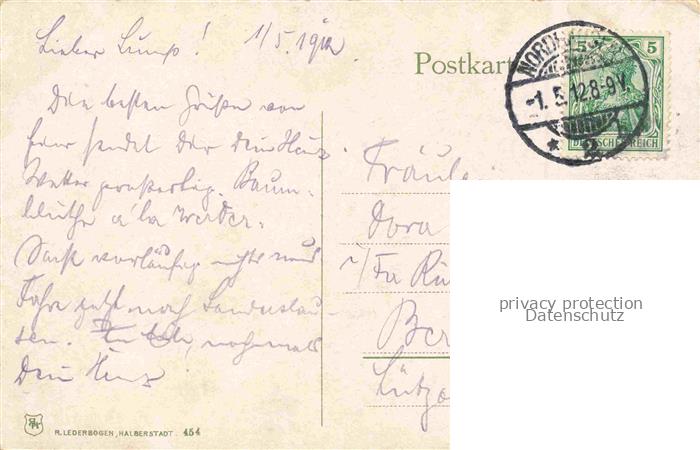 Lieber Lump! 1/5.1912
Die besten Grüße von
hier sendet Dir Dein Heinz
Wetter großartig. Baum-
blüthe a la Werder.
Sonst vorläufig nichts neues
Fahre jetzt noch
nochmals
Dein Heinz
Postkart
NORDHAUSEN
-1.5.12.8-9V.
* 2
5 5
DEUTSCHES REICH
Fräule
Dora
Fa Rü
Ber
Lützo
privacy protection
Datenschutz
R. LEDERBOGEN, HALBERSTADT. 454